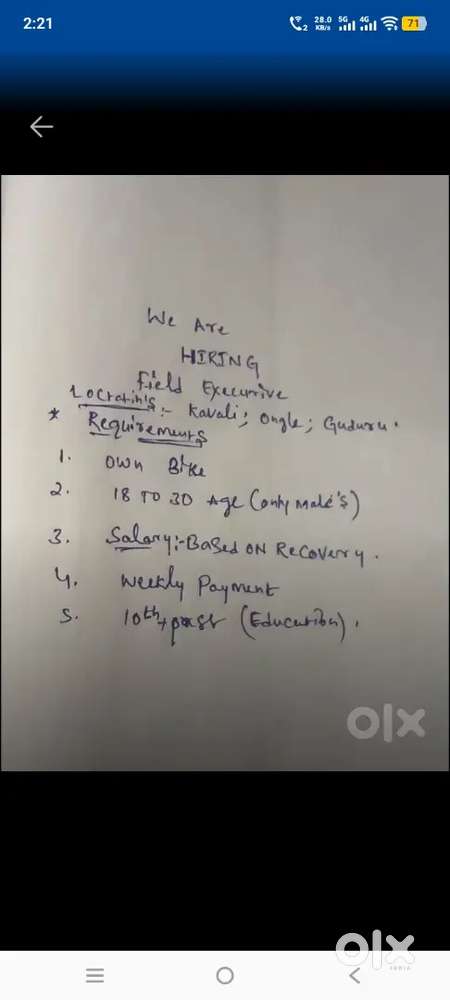 2:21
2 28.0 KB/s 5G 4G 71
We Are
HIRING
Field Executive
Locratin's:- Kavali; Ongle; Guduru.
* Requirements
1. own Bike
2. 18 TO 30 Age (only Male's)
3. Salary:- Based on Recovery.
4. Weekly Payment
5. 10th, past (Education).
olx
olx
INDIA